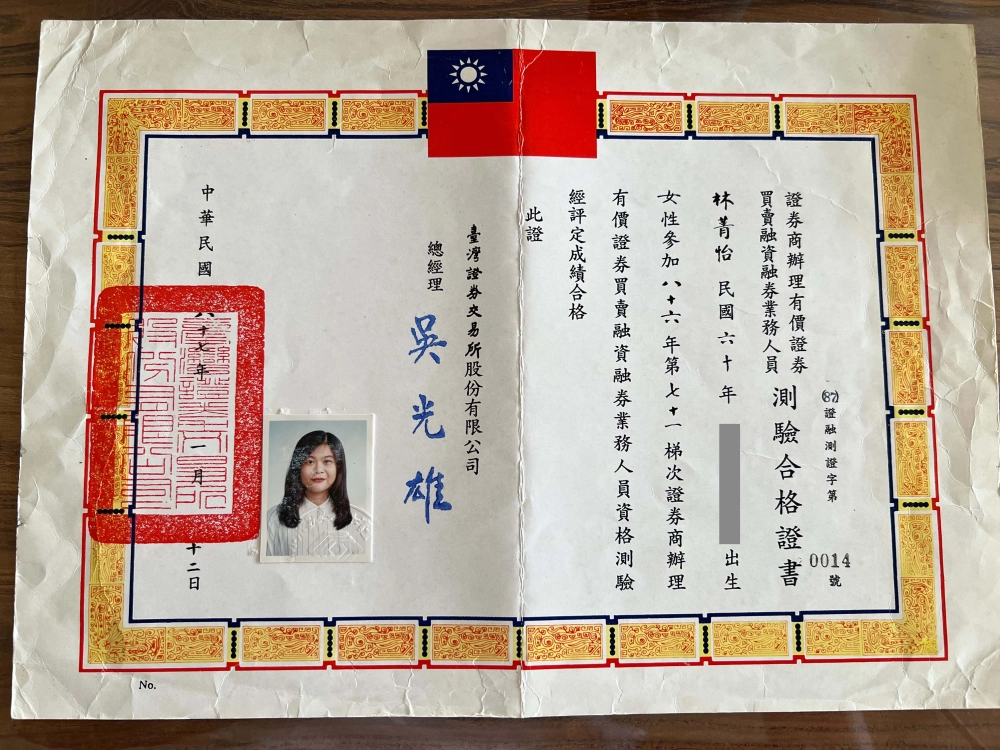 證券商辦理有價證券
買賣融資融券業務人員
測驗合格證書
(87)證融測證字第0014號
林菁怡 民國六十年 出生
女性參加八十六年第七十一梯次證券商辦理
有價證券買賣融資融券業務人員資格測驗
經評定成績合格
此證
臺灣證券交易所股份有限公司
總經理
吳光雄
中華民國八十七年一月十二日
No.